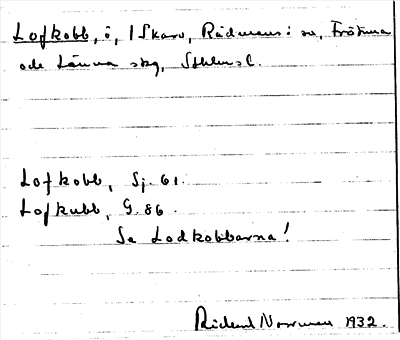 Lofkobb, ö, I Skarv, Rådmans: sn, Frötuna
och Länna skg, Sthlms l.
Lofkobb, Sj. 61.
Lofkubb, G. 86.
Se Lodkobbarna!
Rickard Norrman 1932.